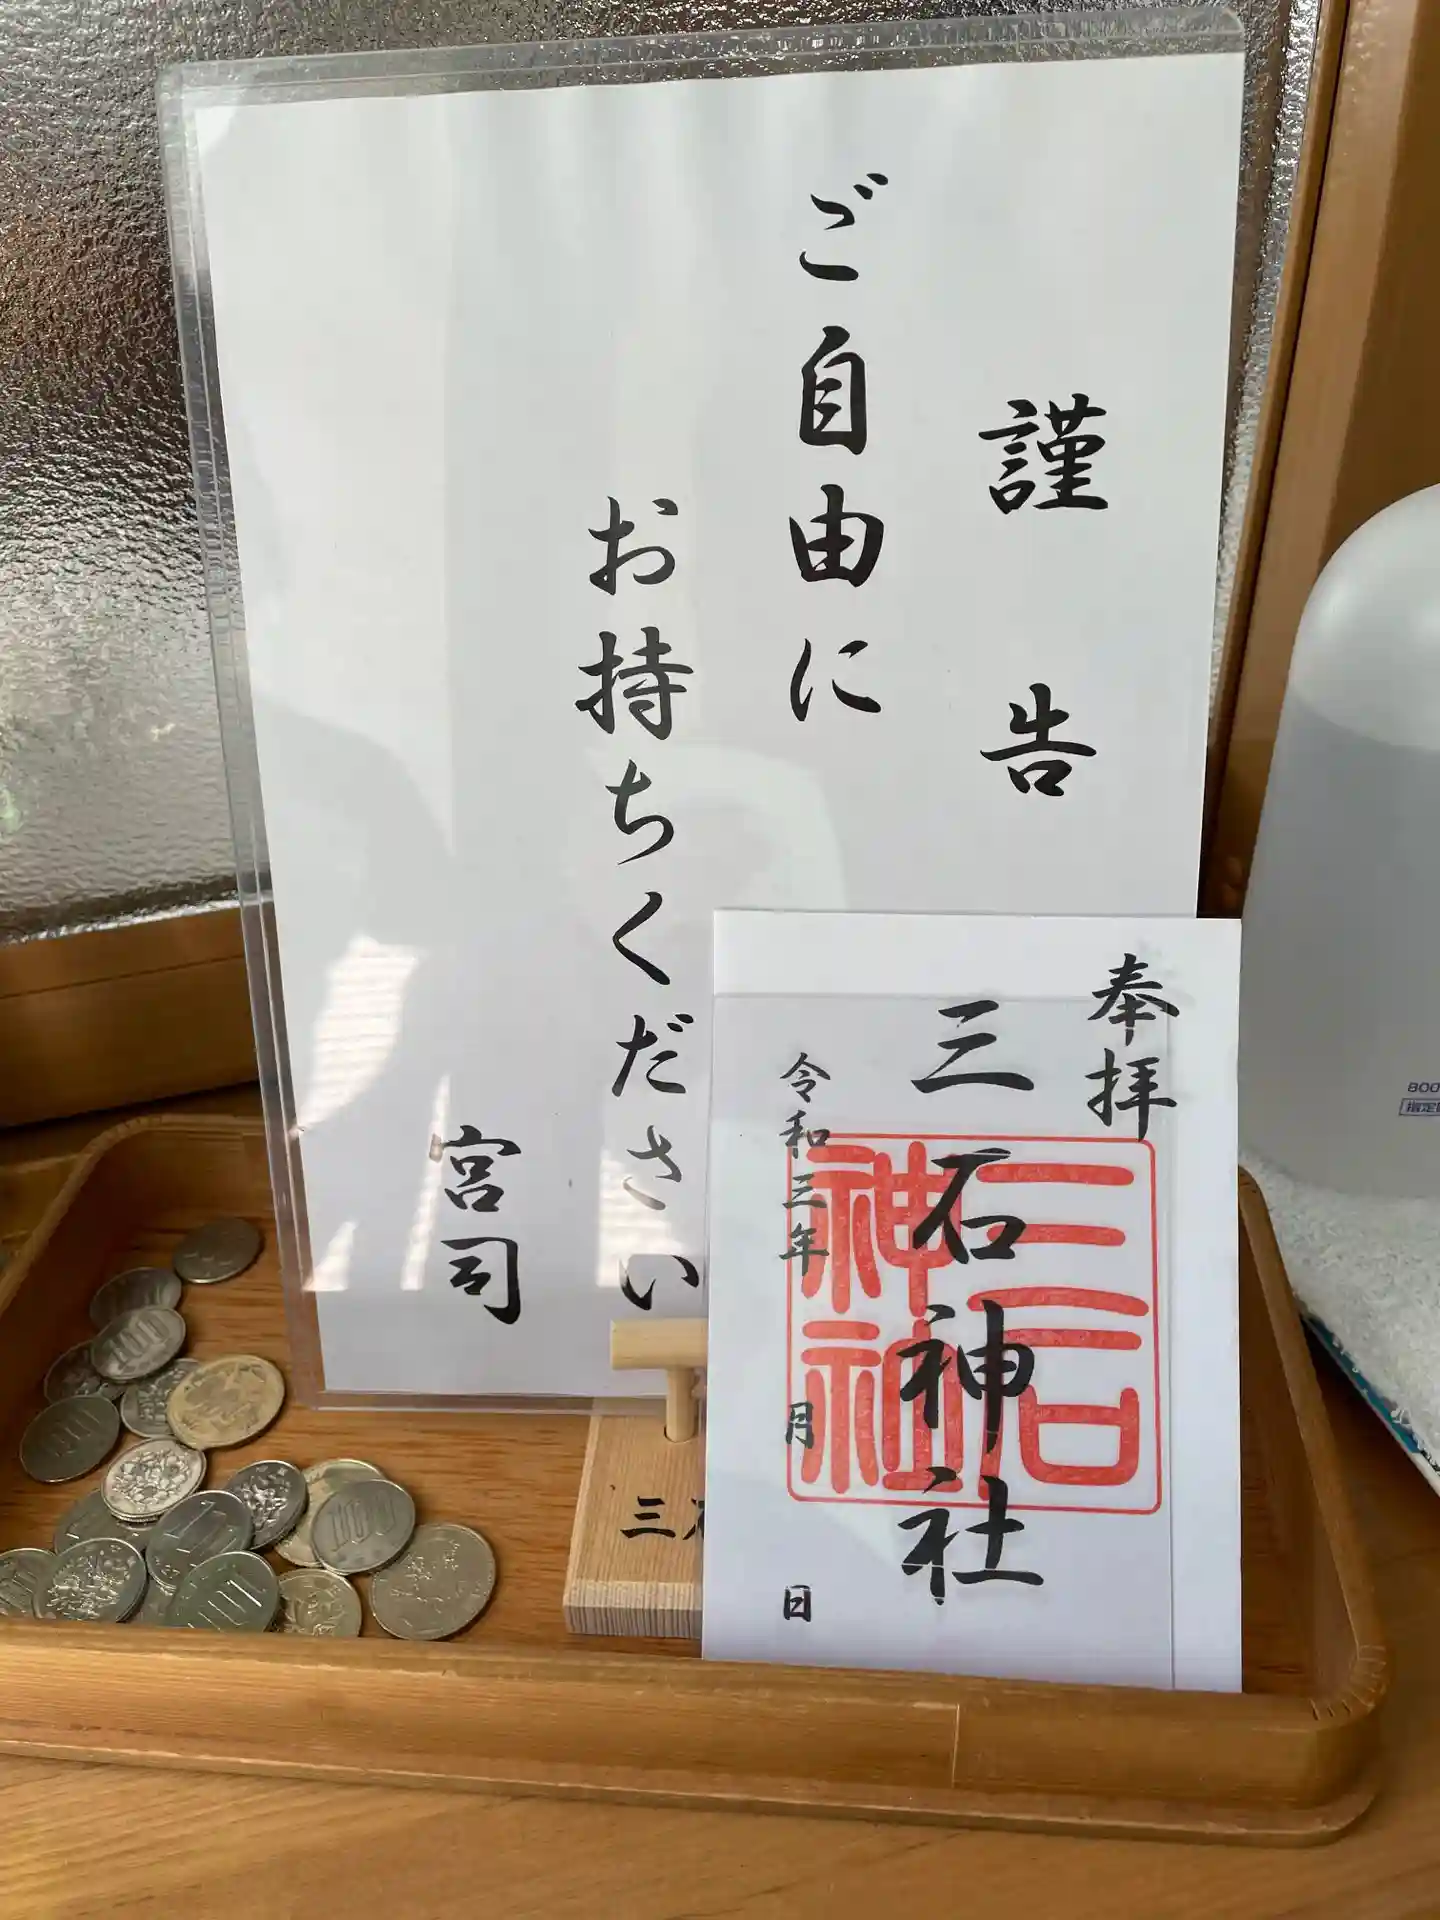 謹告
ご自由に
お持ちください
宮司
奉拝
三石神社
令和三年 月 日
三石
神社
三石
800
指定
100
100
100